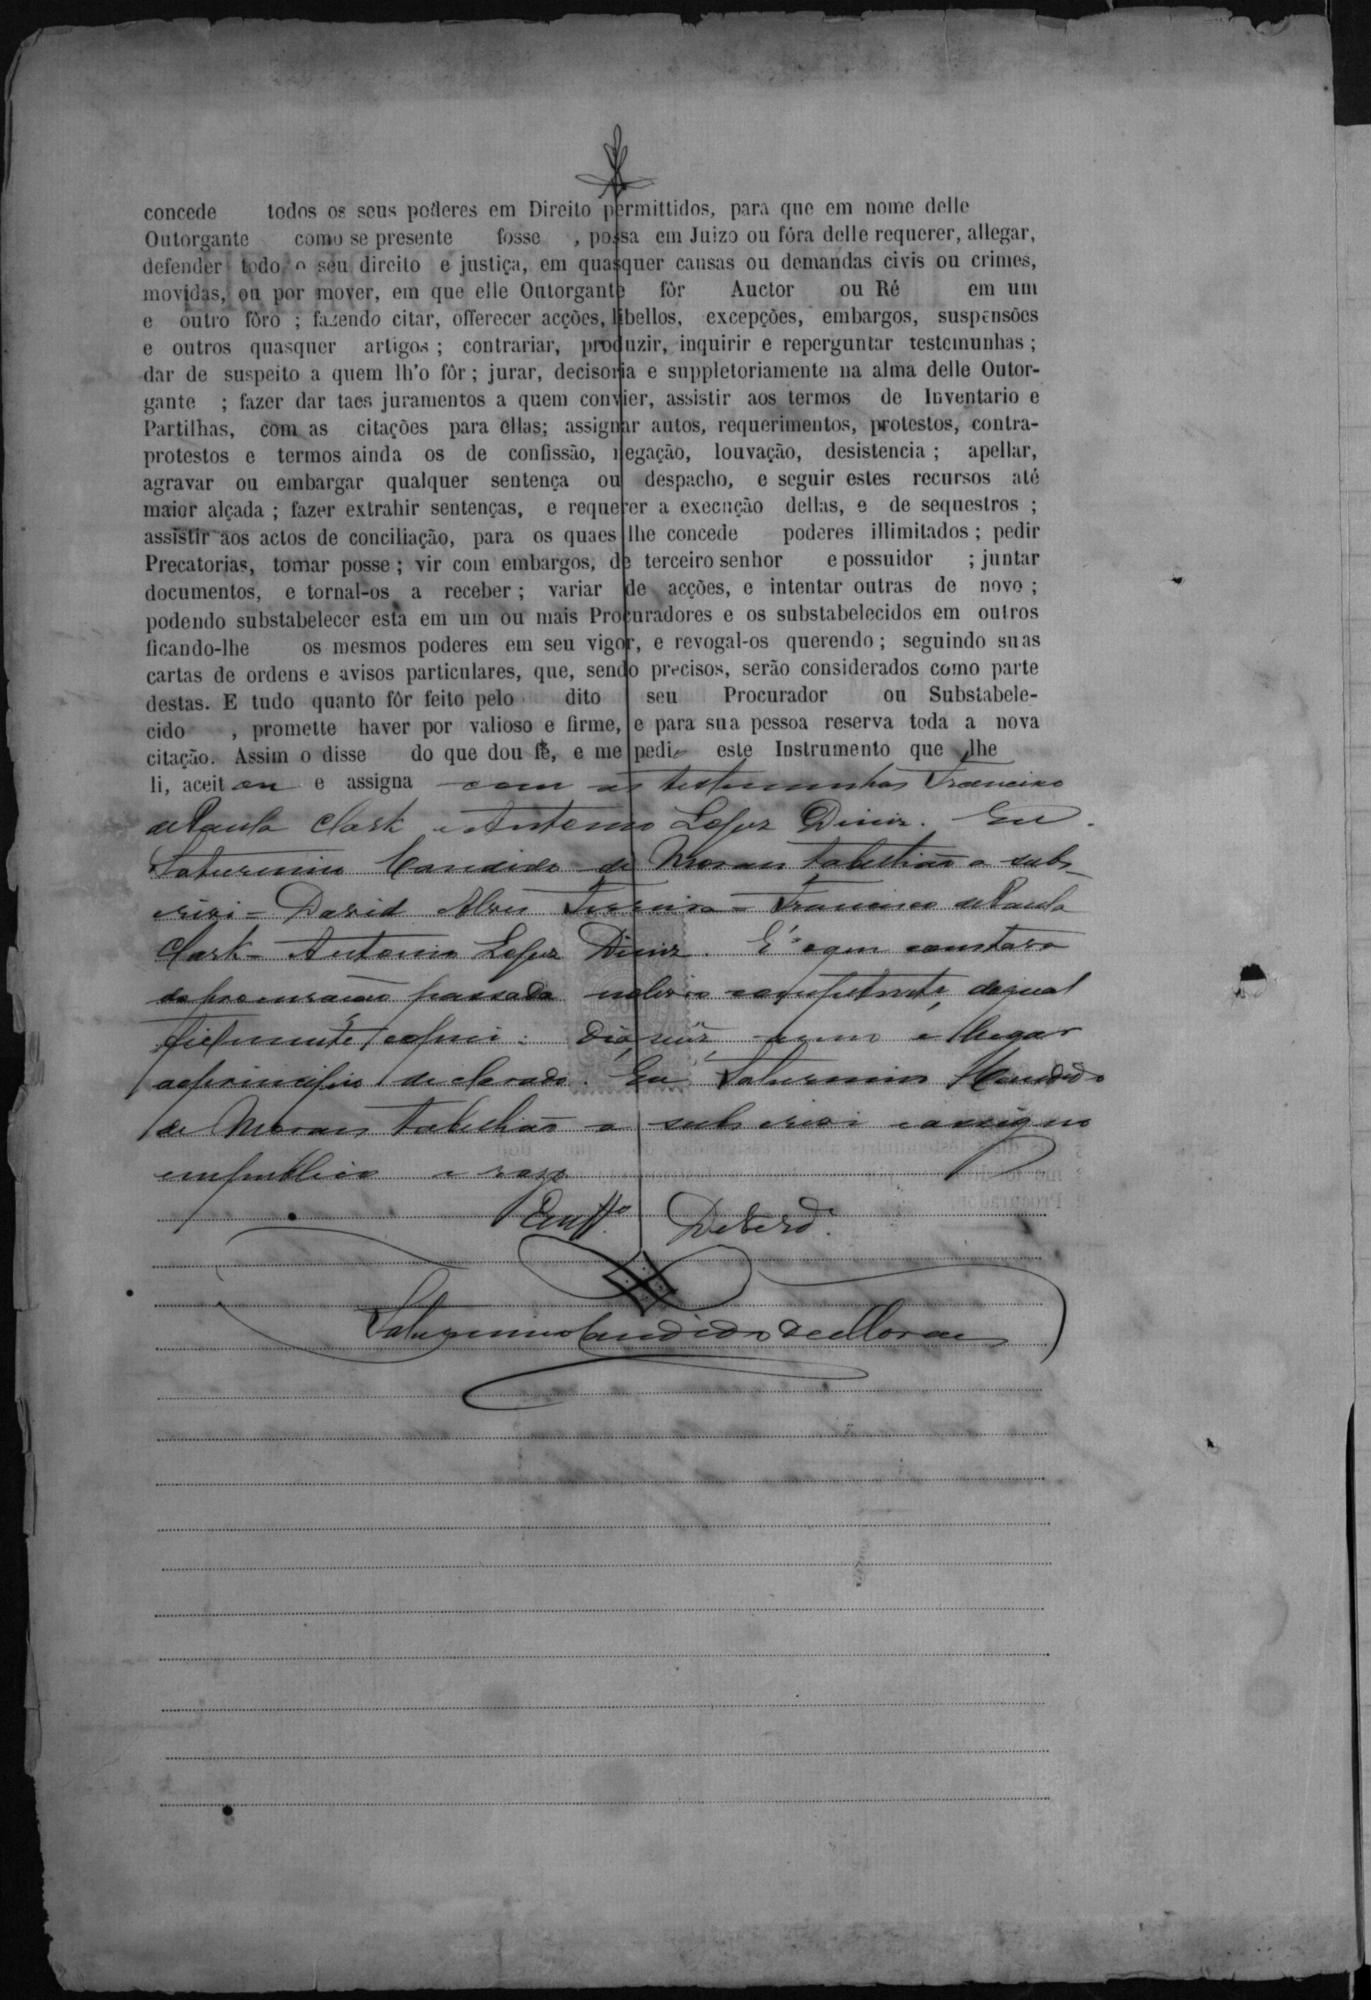 concede todos os seus poderes em Direito permittidos, para que em nome delle
Outorgante como se presente fosse , possa em Juizo ou fóra delle requerer, allegar,
defender todo o seu direito e justiça, em quasquer causas ou demandas civis ou crimes,
movidas, ou por mover, em que elle Outorgante fôr Auctor ou Ré em um
e outro fôro ; fazendo citar, offerecer acções, libellos, excepções, embargos, suspensões
e outros quasquer artigos ; contrariar, produzir, inquirir e reperguntar testemunhas ;
dar de suspeito a quem lh'o fôr ; jurar, decisoria e suppletoriamente na alma delle Outor-
gante ; fazer dar taes juramentos a quem convier, assistir aos termos de Inventario e
Partilhas, com as citações para ellas; assignar autos, requerimentos, protestos, contra-
protestos e termos ainda os de confissão, negação, louvação, desistencia ; apellar,
agravar ou embargar qualquer sentença ou despacho, e seguir estes recursos até
maior alçada ; fazer extrahir sentenças, e requerer a execução dellas, e de sequestros ;
assistir aos actos de conciliação, para os quaes lhe concede poderes illimitados ; pedir
Precatorias, tomar posse ; vir com embargos, de terceiro senhor e possuidor ; juntar
documentos, e tornal-os a receber ; variar de acções, e intentar outras de novo ;
podendo substabelecer esta em um ou mais Procuradores e os substabelecidos em outros
ficando-lhe os mesmos poderes em seu vigor, e revogal-os querendo ; seguindo suas
cartas de ordens e avisos particulares, que, sendo precisos, serão considerados como parte
destas. E tudo quanto fôr feito pelo dito seu Procurador ou Substabele-
cido , promette haver por valioso e firme, e para sua pessoa reserva toda a nova
citação. Assim o disse do que dou fé, e me pedio este Instrumento que lhe
li, aceitou e assigna com as testemunhas Francisco
de Paula Clark e Antonio Lopes Diniz. Eu
Saturnino Candido de Moraes tabellião o subs-
crivi = David Alves Ferreira = Francisco de Paula
Clark = Antonio Lopes Diniz. É o que constava
da procuração passada no livro competente, da qual
fielmente copiei: dia, mez, anno e lugar
ao principio declarado. Eu Saturnino Candido
de Moraes tabellião o subscrivi e assigno
em publico e raso
Em Tto de Verd.
Saturnino Candido de Moraes